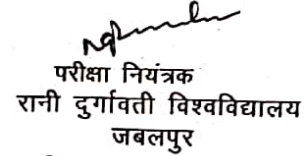 परीक्षा नियंत्रक
रानी दुर्गावती विश्वविद्यालय
जबलपुर